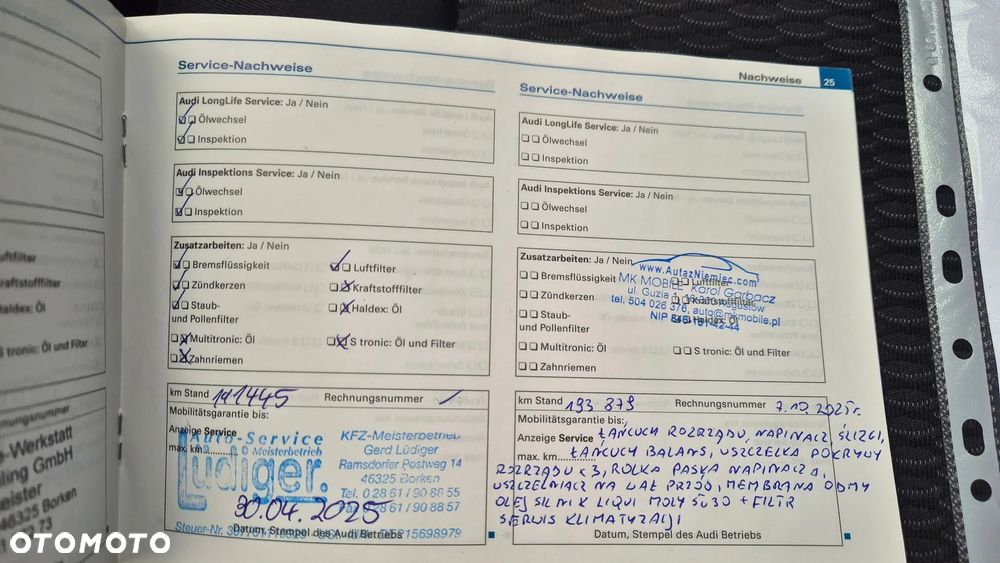 Nachweise
25
Service-Nachweise
Audi LongLife Service: Ja / Nein
Ölwechsel
Inspektion
Audi Inspektions Service: Ja / Nein
Ölwechsel
Inspektion
Zusatzarbeiten: Ja / Nein
Bremsflüssigkeit
Luftfilter
Zündkerzen
Kraftstofffilter
Staub-
und Pollenfilter
Haldex: Öl
Multitronic: Öl
S tronic: Öl und Filter
Zahnriemen
km Stand 141445 Rechnungsnummer
Mobilitätsgarantie bis:
Anzeige Service
max. km
Auto-Service
Meisterbetrieb
Lüdiger.
KFZ-Meisterbetrieb
Gerd Lüdiger
Ramsdorfer Postweg 14
46325 Borken
Tel. 0 28 61 / 90 88 55
Fax 0 28 61 / 90 88 57
30.04.2025
Steuer-Nr.
Datum, Stempel des Audi Betriebs
Service-Nachweise
Audi LongLife Service: Ja / Nein
Ölwechsel
Inspektion
Audi Inspektions Service: Ja / Nein
Ölwechsel
Inspektion
Zusatzarbeiten: Ja / Nein
Bremsflüssigkeit
Luftfilter
Zündkerzen
Kraftstofffilter
Staub-
und Pollenfilter
Haldex: Öl
Multitronic: Öl
S tronic: Öl und Filter
Zahnriemen
www.AutazNiemiec.com
MK MOBILE Karol Gorbacz
tel. 504 026 376, auto@mkmobile.pl
km Stand 193 879 Rechnungsnummer 7.10.2025r.
Mobilitätsgarantie bis:
Anzeige Service ŁAŃCUCH ROZRZĄDU, NAPINACZ, ŚLIZGI,
max. km ŁAŃCUCH BALANS, USZCZELKA POKRYWY
ROZRZĄDU x3, ROLKA PASKA NAPINACZA,
USZCZELNIACZ NA WAŁ PRZÓD, MEMBRANA ODMY
OLEJ SILNIK LIQUI MOLY 5W30 + FILTR
SERWIS KLIMATYZACJI
Datum, Stempel des Audi Betriebs
OTOMOTO
-Werkstatt
ling GmbH
eister
46325 Borken